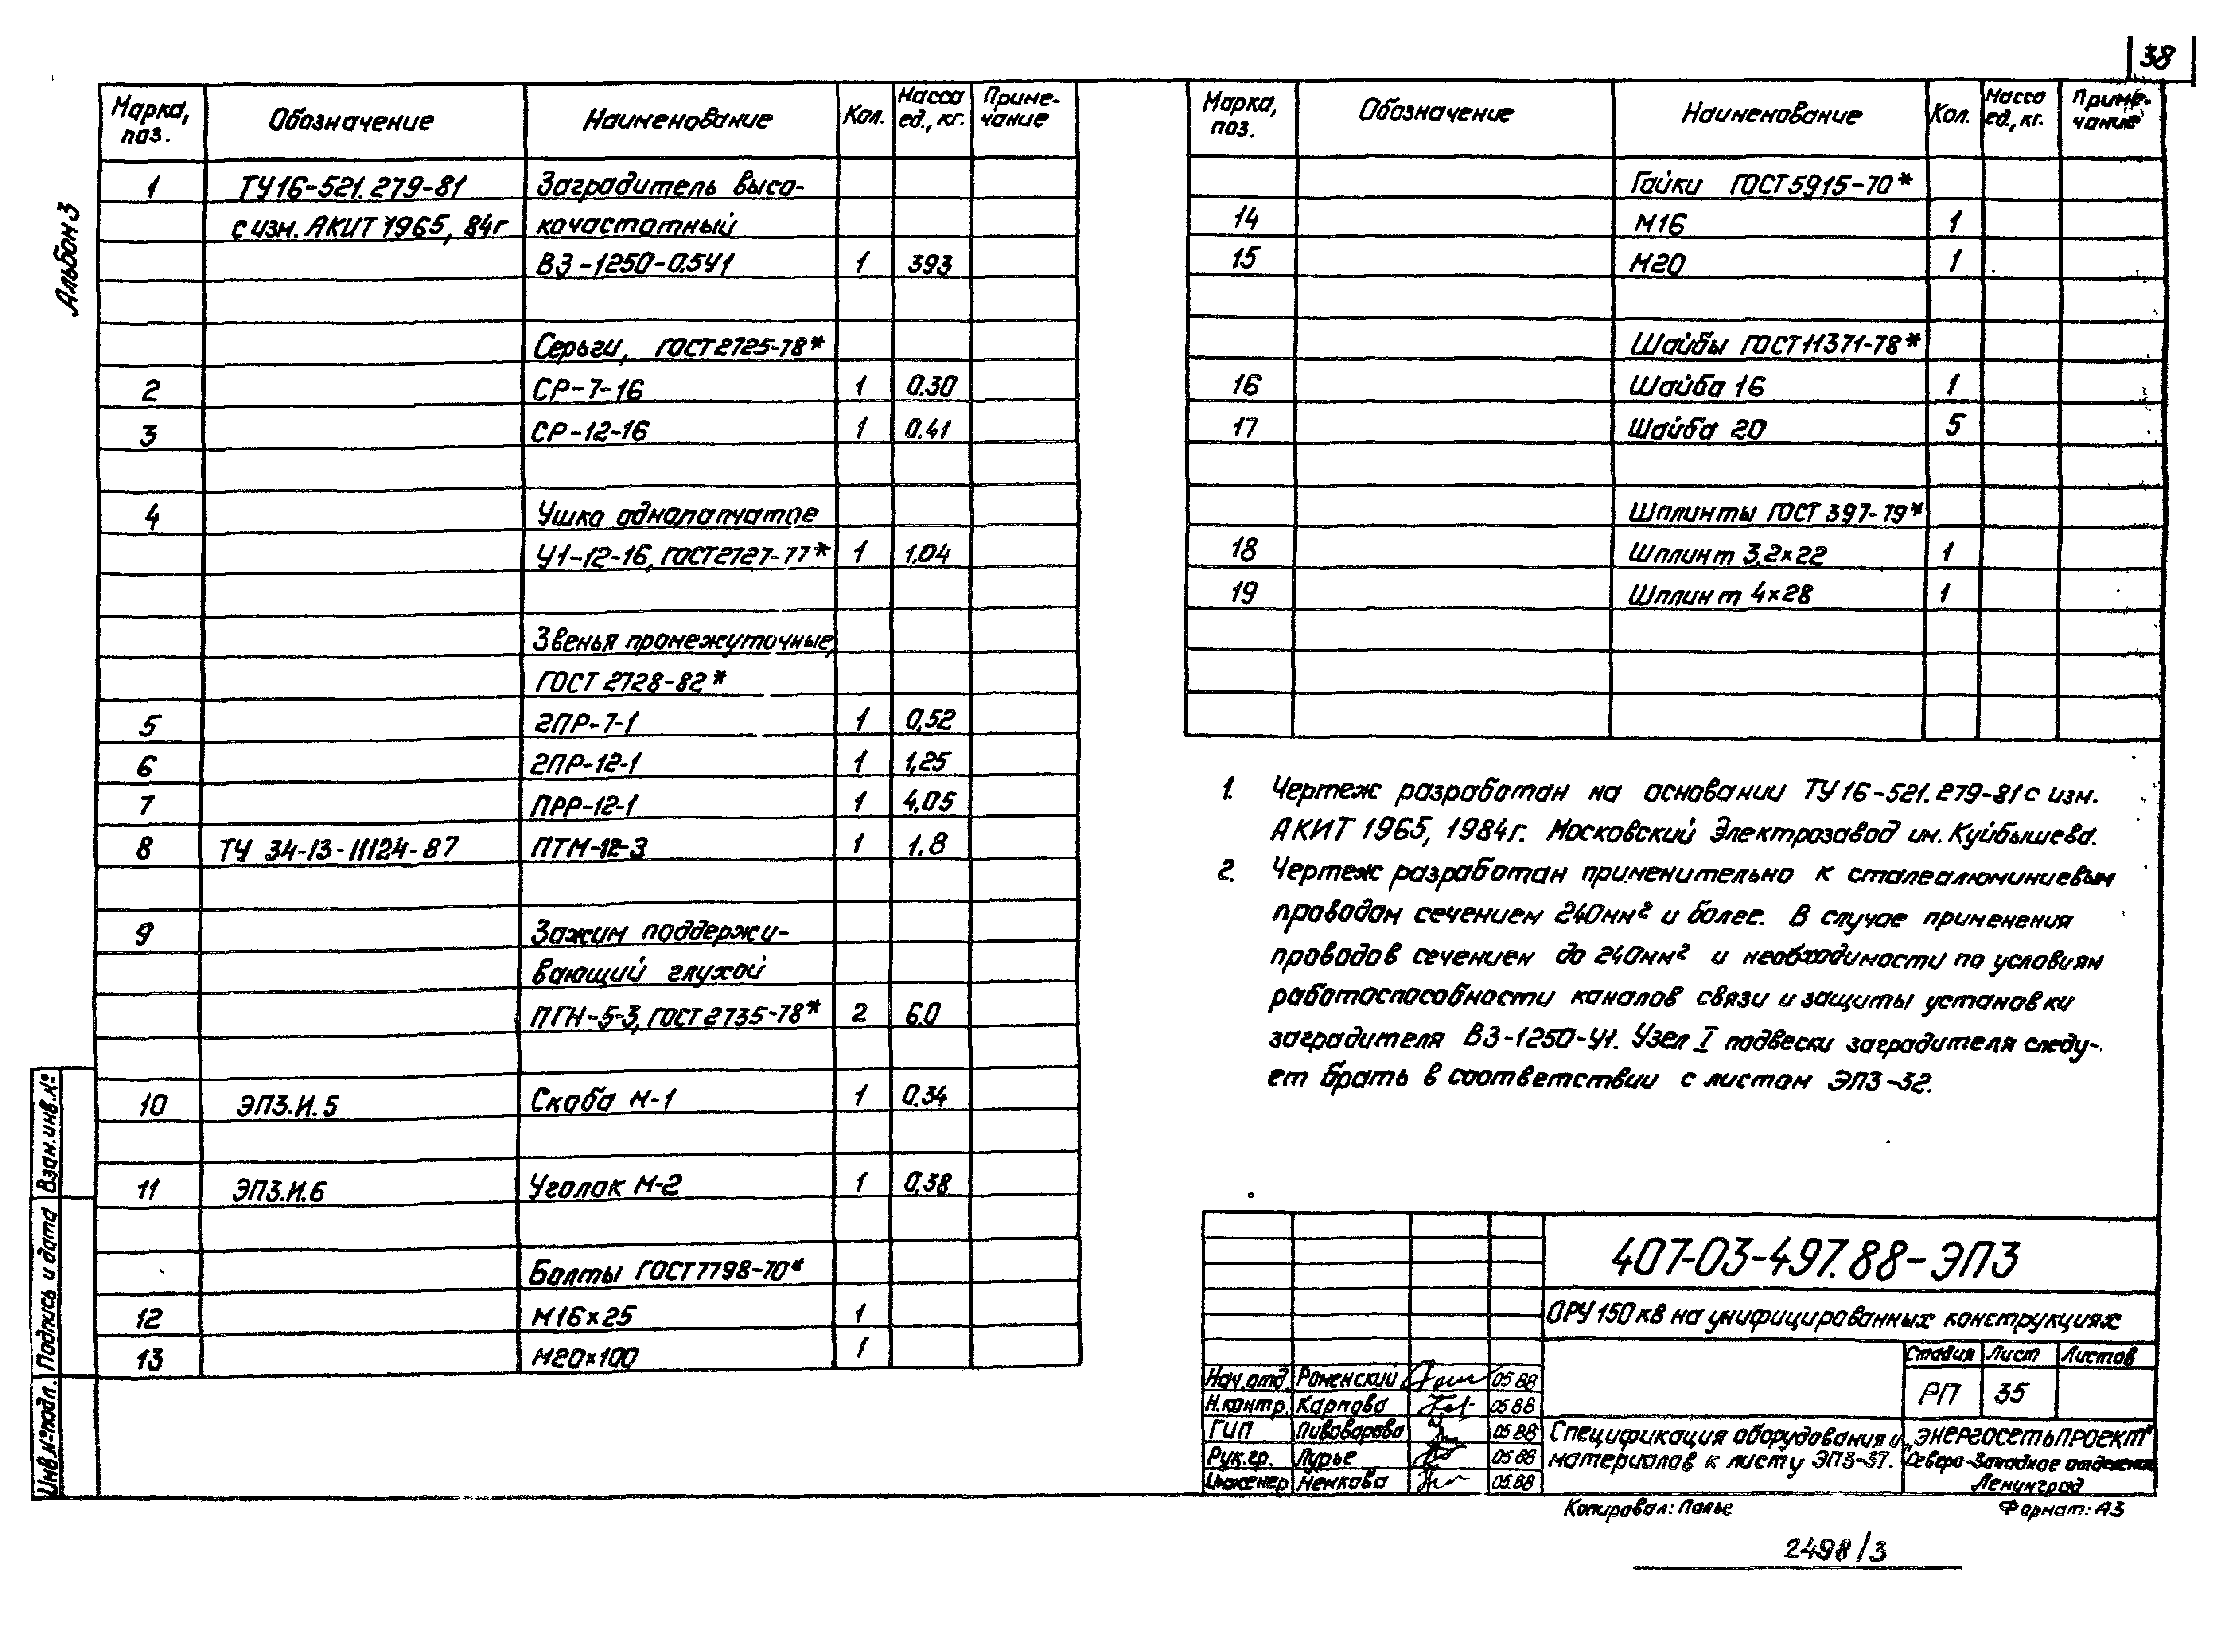 38
Альбом 3
Марка, поз. Обозначение Наименование Кол. Масса ед., кг. Приме-чание
1 ТУ16-521.279-81 Заградитель высо-
с изм. АКИТ 1965, 84г кочастотный
ВЗ-1250-0.5У1 1 393
Серьги, ГОСТ 2725-78*
2 СР-7-16 1 0.30
3 СР-12-16 1 0.41
4 Ушко однолапчатое
У1-12-16, ГОСТ 2727-77* 1 1.04
Звенья промежуточные,
ГОСТ 2728-82*
5 2ПР-7-1 1 0,52
6 2ПР-12-1 1 1,25
7 ПРР-12-1 1 4.05
8 ТУ 34-13-11124-87 ПТМ-12-3 1 1.8
9 Зажим поддержи-
вающий глухой
ПГН-5-3, ГОСТ 2735-78* 2 6.0
10 ЭП3.И.5 Скоба М-1 1 0.34
11 ЭП3.И.6 Уголок М-2 1 0.38
Болты ГОСТ 7798-70*
12 М16×25 1
13 М20×100 1
Марка, поз. Обозначение Наименование Кол. Масса ед., кг. Приме-чание
Гайки ГОСТ 5915-70*
14 М16 1
15 М20 1
Шайбы ГОСТ 11371-78*
16 Шайба 16 1
17 Шайба 20 5
Шплинты ГОСТ 397-79*
18 Шплинт 3,2×22 1
19 Шплинт 4×28 1
1. Чертеж разработан на основании ТУ 16-521.279-81 с изм.
АКИТ 1965, 1984г. Московский Электрозавод им. Куйбышева.
2. Чертеж разработан применительно к сталеалюминиевым
проводам сечением 240мм² и более. В случае применения
проводов сечением до 240мм² и необходимости по условиям
работоспособности каналов связи и защиты установки
заградителя ВЗ-1250-У1. Узел I подвески заградителя следу-
ет брать в соответствии с листом ЭП3-32.
407-03-497.88-ЭП3
ОРУ 150 кв на унифицированных конструкциях
Стадия Лист Листов
РП 35
Нач.отд. Роменский 05.88
Н.контр. Карпова 05.88
ГИП Пивоварова 05.88
Рук.гр. Лурье 05.88
Инженер Ненкова 05.88
Спецификация оборудования и
материалов к листу ЭП3-37.
„ЭНЕРГОСЕТЬПРОЕКТ"
Северо-Западное отделение
Ленинград
Копировал: Полье Формат: А3
2498/3
Инв.№ подл. Подпись и дата Взам.инв.№